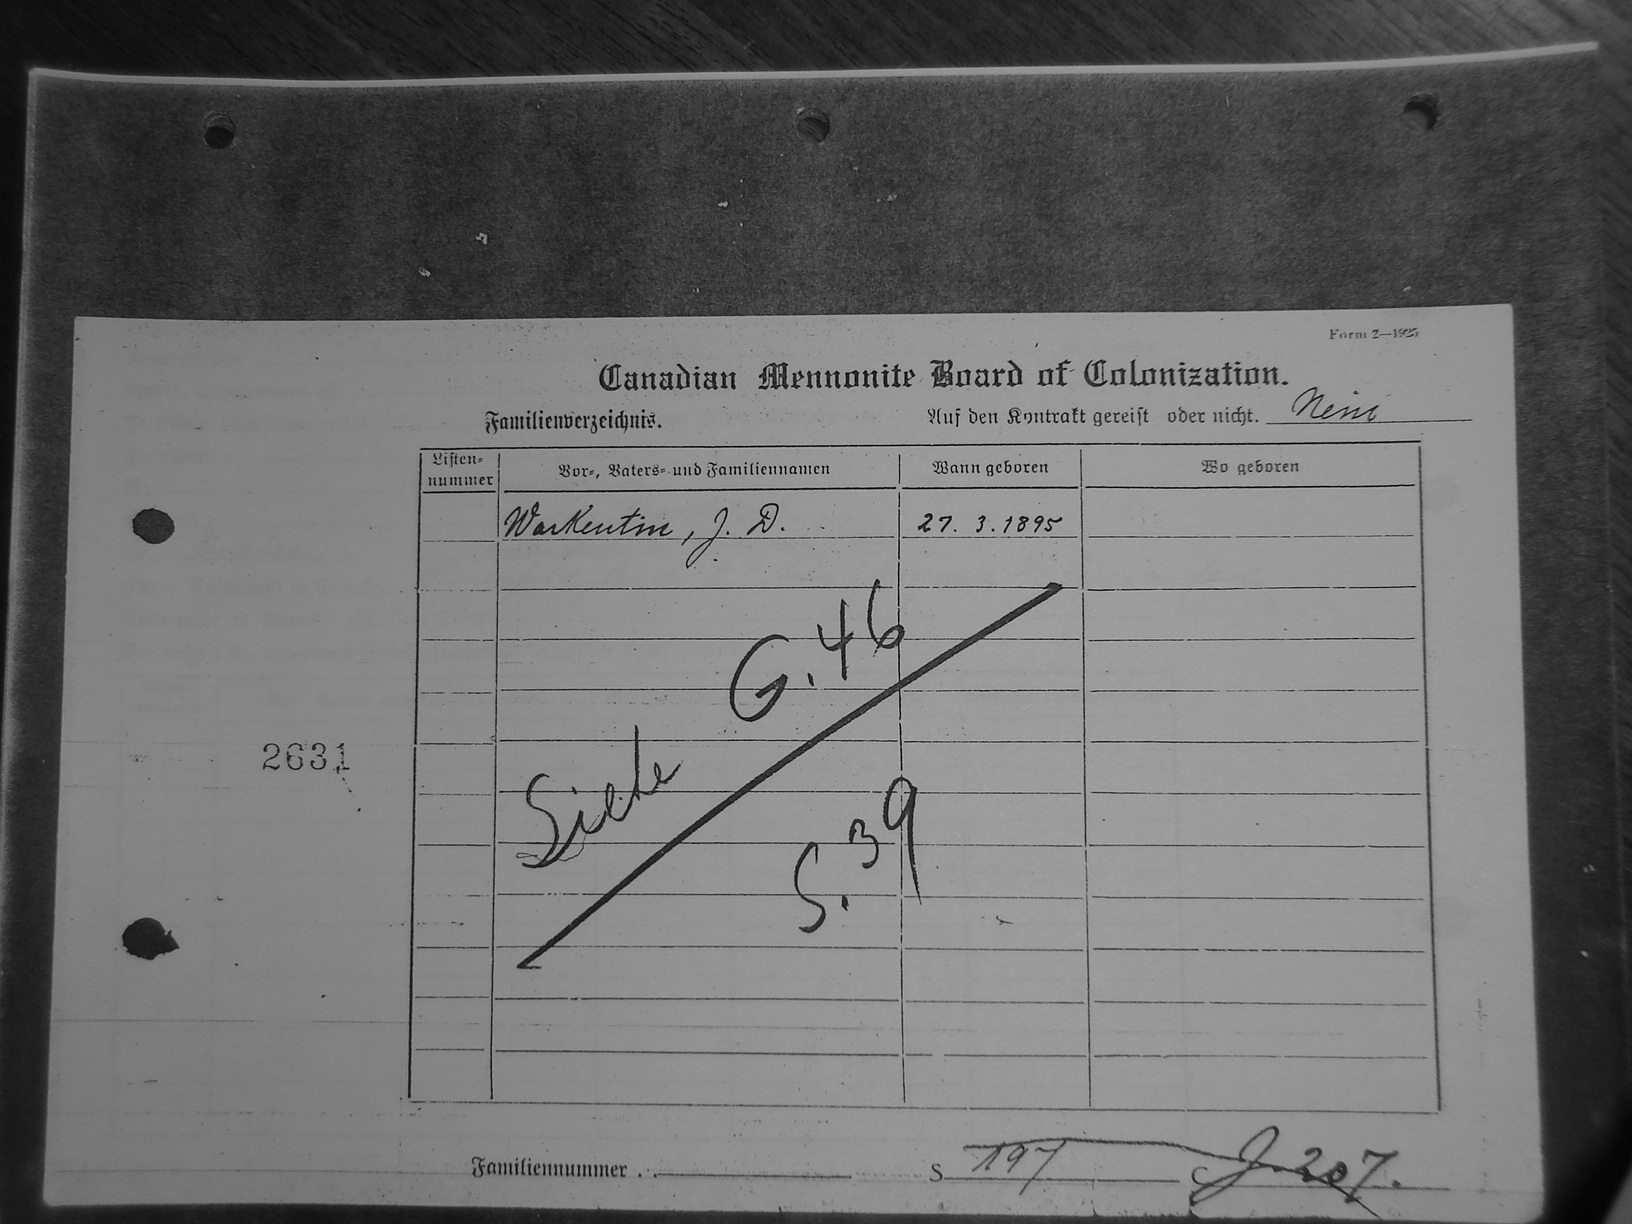 Form 2—1925
Canadian Mennonite Board of Colonization.
Familienverzeichnis. Auf den Kontrakt gereist oder nicht. Nein
Listen-nummer Vor-, Vaters- und Familiennamen Wann geboren Wo geboren
Warkentin, J. D. 27. 3. 1895
Siehe G. 46
2631
S. 39
Familiennummer . . S 197 C J 207.